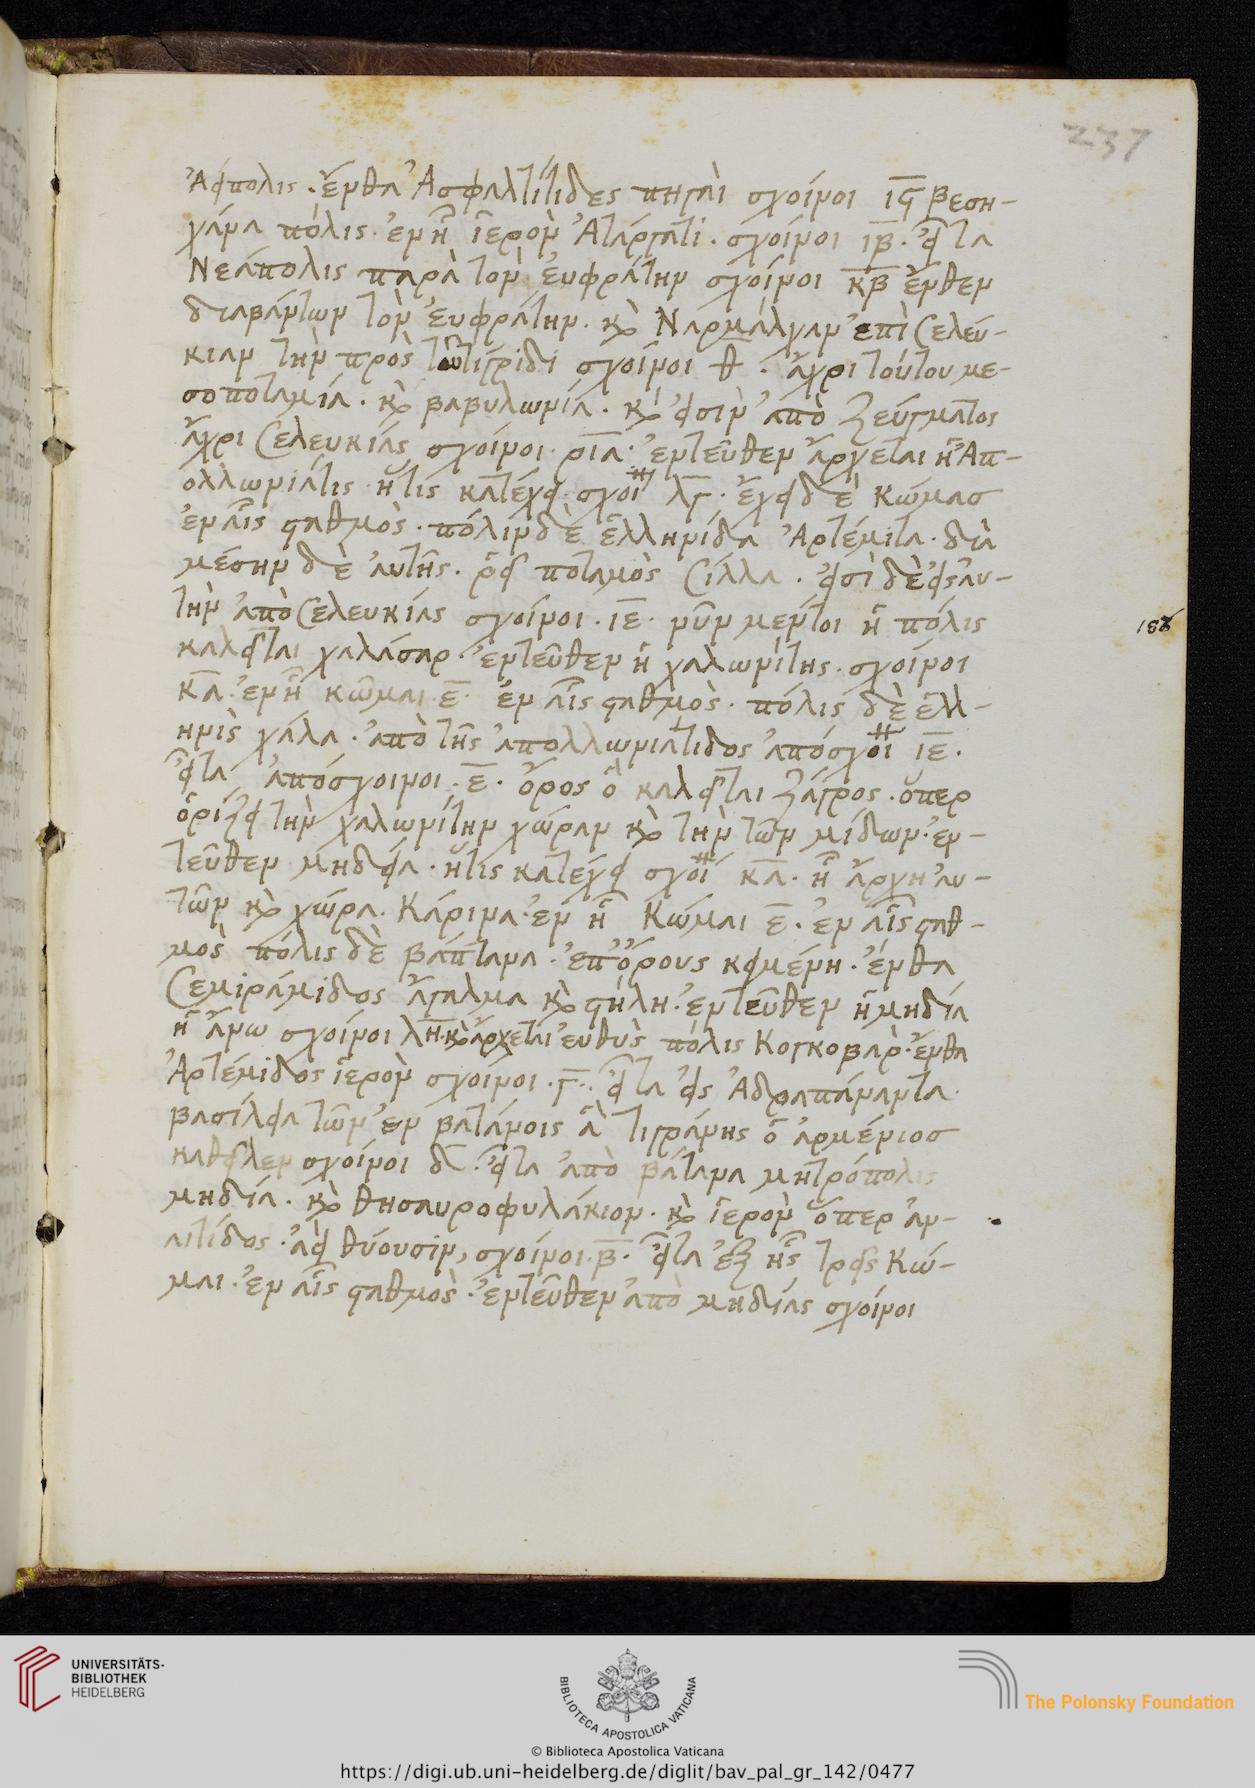 237
Ἀείπολις· ἔνθα Ἀσφαλτίτιδες πηγαὶ σχοίνοι ιϛ βεση-
χάνα πόλις· ἐν ᾗ ἱερὸν Ἀτάργατι· σχοίνοι ιβ· εἶτα
Νεάπολις παρὰ τὸν Ἐυφράτην σχοίνοι κβ ἔνθεν
διαβάντων τὸν Ἐυφράτην· καὶ Ναρμάλχαν ἐπὶ Σελεύ-
κιαν τὴν πρὸς τῶ τίγριδι σχοίνοι θ· ἄχρι τούτου με-
σοποταμία· καὶ βαβυλωνία· καὶ εἰσιν ἀπὸ Ζεύγματος
ἄχρι Σελευκίας σχοίνοι ροα· ἐντεῦθεν ἄρχεται ἡ Ἀπ-
ολλωνιάτις· ἥτις κατέχει σχοῖ λγ· ἔχει δὲ κώμασ
ἐν αἷς σταθμὸς· πόλιν δὲ ἑλληνίδα Ἀρτέμιτα· διὰ
μέσην δὲ αὐτῆς· ῥεῖ ποταμὸς Σίλλα· εἰσὶ δὲ εἰς αὐ-
τὴν ἀπὸ Σελευκίας σχοίνοι· ιε· νῦν μέντοι ἡ πόλις
καλεῖται χαλάσαρ· ἐντεῦθεν ἡ χαλωνίτης· σχοίνοι
κα· ἐν ᾗ κῶμαι· ε· ἐν αἷς σταθμὸς· πόλις δὲ ἑλλ-
ηνὶς χάλα· ἀπὸ τῆς ἀπολλωνιάτιδος ἀπόσχοῖ ιε·
εἶτα ἀπόσχοινοι· ε· ὄρος ὃ καλεῖται Ζάγρος· ὅπερ
ὁρίζει τὴν χαλωνίτην χώραν καὶ τὴν τῶν μίδων· ἐν-
τεῦθεν μηδεία· ἥτις κατέχει σχοῖ κα· ἡ ἀρχὴ αὐ-
τῶν καὶ χώρα· Κάρινα· ἐν ᾗ Κώμαι ε· ἐν αἷς σταθ-
μὸς πόλις δὲ βάπτανα· ἐπ' ὄρους κειμένη· ἔνθα
Σεμιράμιδος ἄγαλμα καὶ στήλη· ἐντεῦθεν ἡ μηδία
ἡ ἄνω σχοίνοι λη· καὶ ἄρχεται εὐθὺς πόλις Κογκοβαρ· ἔνθα
Ἀρτέμιδος ἱερὸν σχοίνοι· γ·· εἶτα εἰς Ἀδραπάναντα·
βασίλεια τῶν ἐν βατάνοις ἃ τιγράνης ὁ ἀρμένιοσ
καθεῖλεν σχοίνοι δ· εἶτα ἀπὸ βάτανα μητρόπολις
μηδία· καὶ θησαυροφυλάκιον· καὶ ἱερὸν ὅπερ ἀν-
αιτίδος· ἀεὶ θύουσιν, σχοίνοι· β· εἶτα ἐξ ῆς τρεῖς Κώ-
μαι· ἐν αἷς σταθμὸς· ἐντεῦθεν ἀπὸ μηδίας σχοίνοι
UNIVERSITÄTS-
BIBLIOTHEK
HEIDELBERG
BIBLIOTECA APOSTOLICA VATICANA
The Polonsky Foundation
© Biblioteca Apostolica Vaticana
https://digi.ub.uni-heidelberg.de/diglit/bav_pal_gr_142/0477